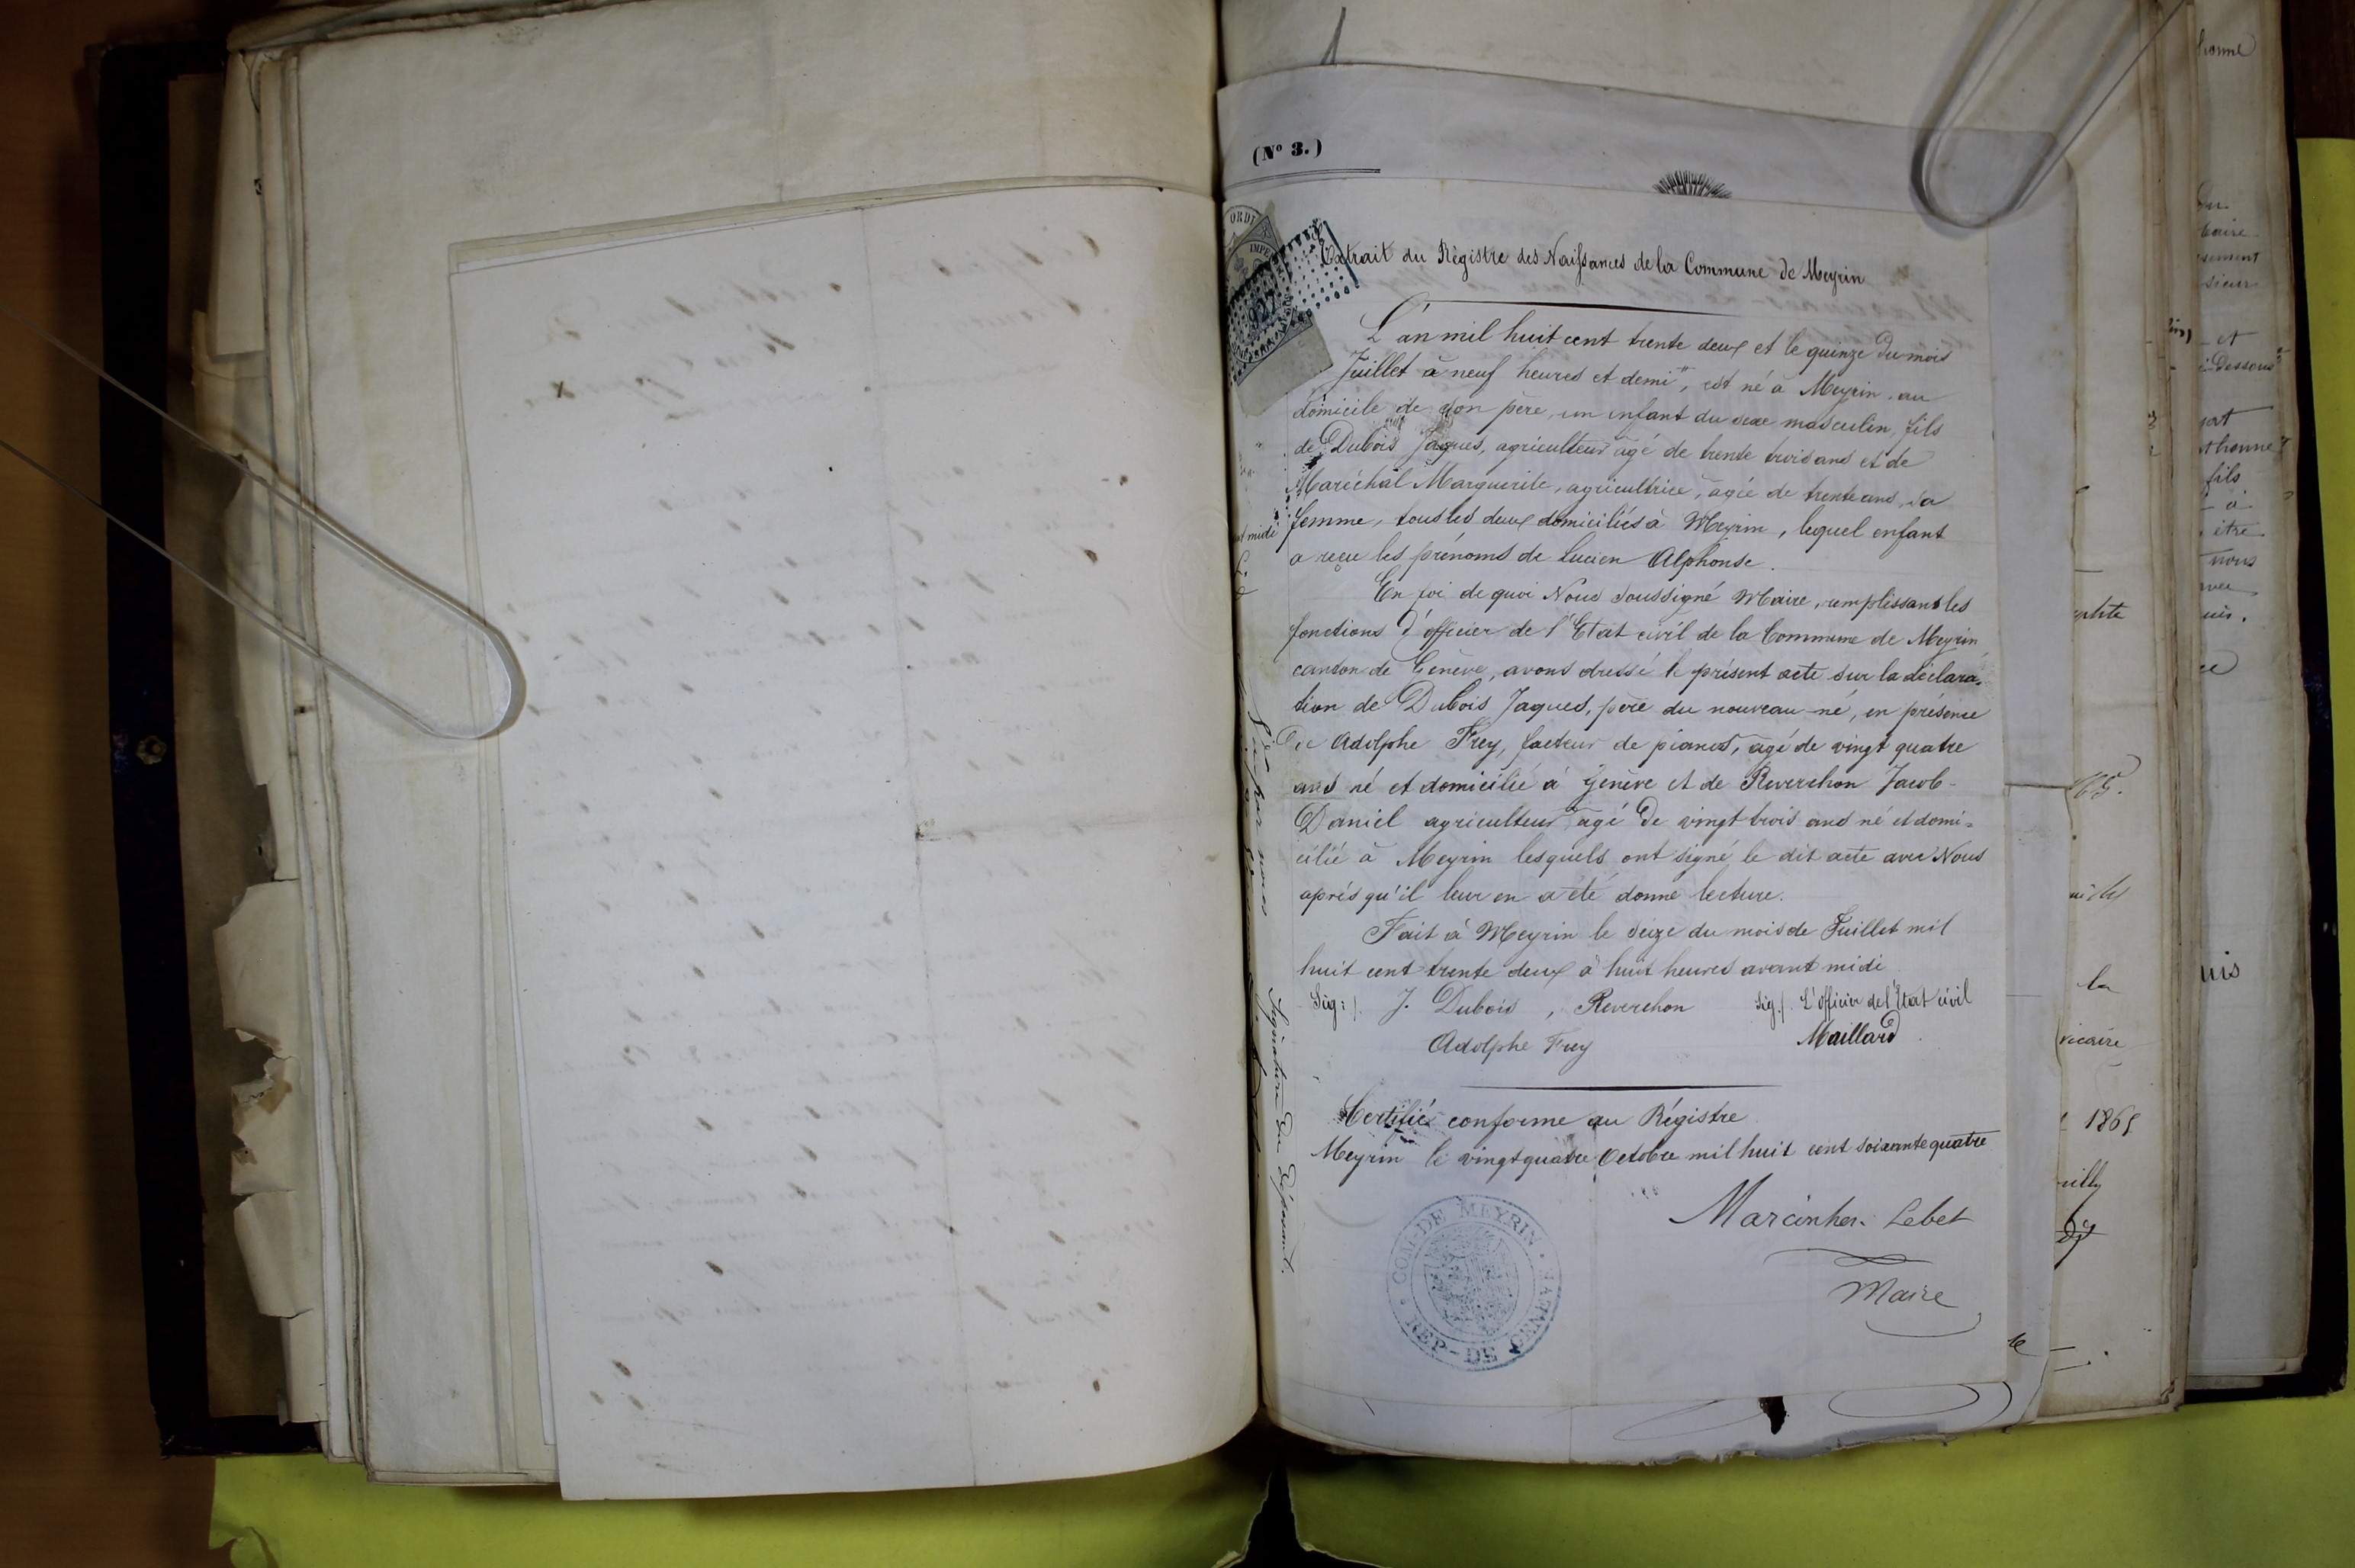 (N° 3.)
Extrait du Régistre des Naissances de la Commune de Meyrin
L'an mil huit cent trente deux et le quinze du mois
Juillet à neuf heures et demi, est né à Meyrin au
domicile de son père, un enfant du sexe masculin, fils
de Dubois Jaques, agriculteur agé de trente trois ans et de
Maréchal Marguerite, agricultrice, agée de trente ans, sa
femme, tous les deux domiciliés à Meyrin, lequel enfant
a reçu les prénoms de Lucien Alphonse.
En foi de quoi Nous soussigné Maire, remplissant les
fonctions d'officier de l'Etat civil de la Commune de Meyrin
canton de Genève, avons dressé le présent acte sur la déclara-
tion de Dubois Jaques, père du nouveau-né, en présence
de Adolphe Frey, facteur de pianos, agé de vingt quatre
ans né et domicilié à Genève et de Reverchon Jacob-
Daniel agriculteur agé de vingt trois ans né et domi-
cilié à Meyrin lesquels ont signé le dit acte avec Nous
après qu'il leur en a été donné lecture.
Fait à Meyrin le seize du mois de Juillet mil
huit cent trente deux à huit heures avant midi
Sig: J. Dubois, Reverchon Sig. L'officier de l'Etat civil
Adolphe Frey Maillard
Certifié conforme au Régistre
Meyrin le vingt quatre Octobre mil huit cent soixante quatre
Lebet
Maire
COM-DE MEYRIN
REP-DE GENEVE
Signature du Déposant.
midi
honne
sement
sieur
et
ci-Dessous
fils
à
être
nous
la
vicaire
1865